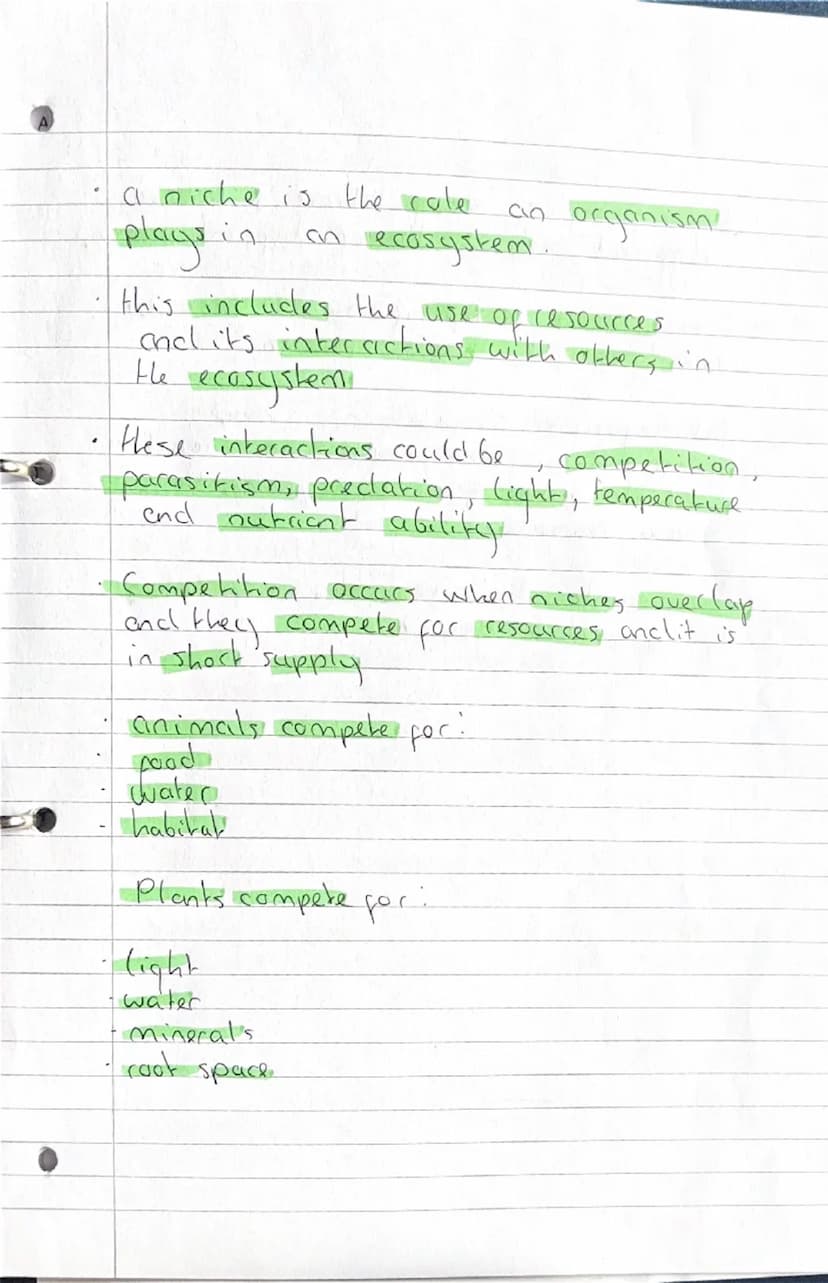 A
· a niche is the role an organism
plays in an ecosystem.
· this includes the use of resources
and its interactions with others in
the ecosystem
· these interactions could be, competition,
parasitism, predation, light, temperature
and nutrient ability
· Competition occurs when niches overlap
and they compete for resources and it is
in short supply
· animals compete for:
· food
- water
- habitat
Plants compete for:
· light
- water
- minerals
· root space